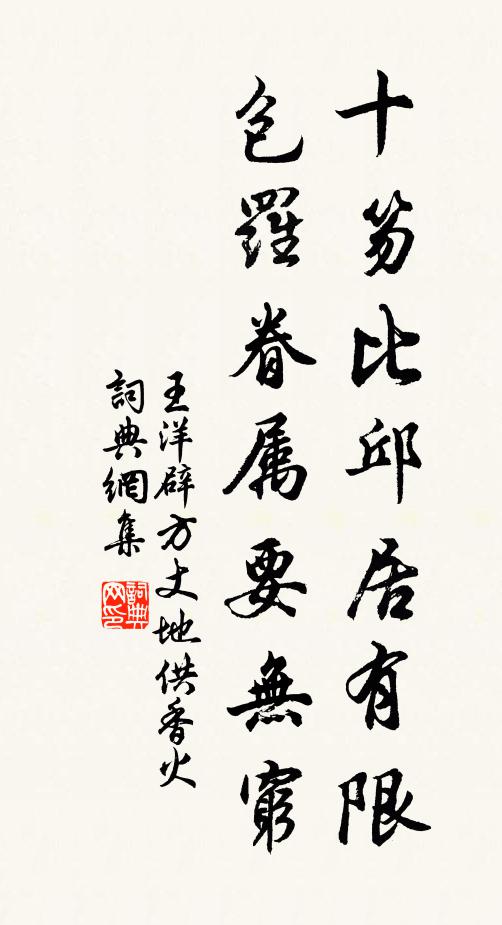 十笏比邱居有限
包羅眷属要無窮
王洋辟方丈地供香火
詞典網集
詞典网印